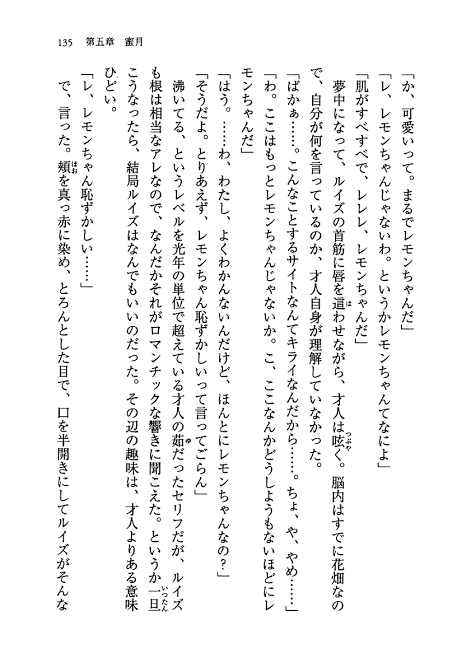 135　第五章　蜜月
「か、可愛いって。まるでレモンちゃんだ」
「レ、レモンちゃんじゃないわ。というかレモンちゃんてなによ」
「肌がすべすべで、レレレ、レモンちゃんだ」
　夢中になって、ルイズの首筋に唇を這わせながら、才人は呟く。脳内はすでに花畑なの
で、自分が何を言っているのか、才人自身が理解していなかった。
「ばかぁ……。こんなことするサイトなんてキライなんだから……。ちょ、や、やめ……」
「わ。ここはもっとレモンちゃんじゃないか。こ、ここなんかどうしようもないほどにレ
モンちゃんだ」
「はう。……わ、わたし、よくわかんないんだけど、ほんとにレモンちゃんなの？」
「そうだよ。とりあえず、レモンちゃん恥ずかしいって言ってごらん」
　沸いてる、というレベルを光年の単位で超えている才人の茹だったセリフだが、ルイズ
も根は相当なアレなので、なんだかそれがロマンチックな響きに聞こえた。というか一旦
こうなったら、結局ルイズはなんでもいいのだった。その辺の趣味は、才人よりある意味
ひどい。
「レ、レモンちゃん恥ずかしい……」
　で、言った。頬を真っ赤に染め、とろんとした目で、口を半開きにしてルイズがそんな